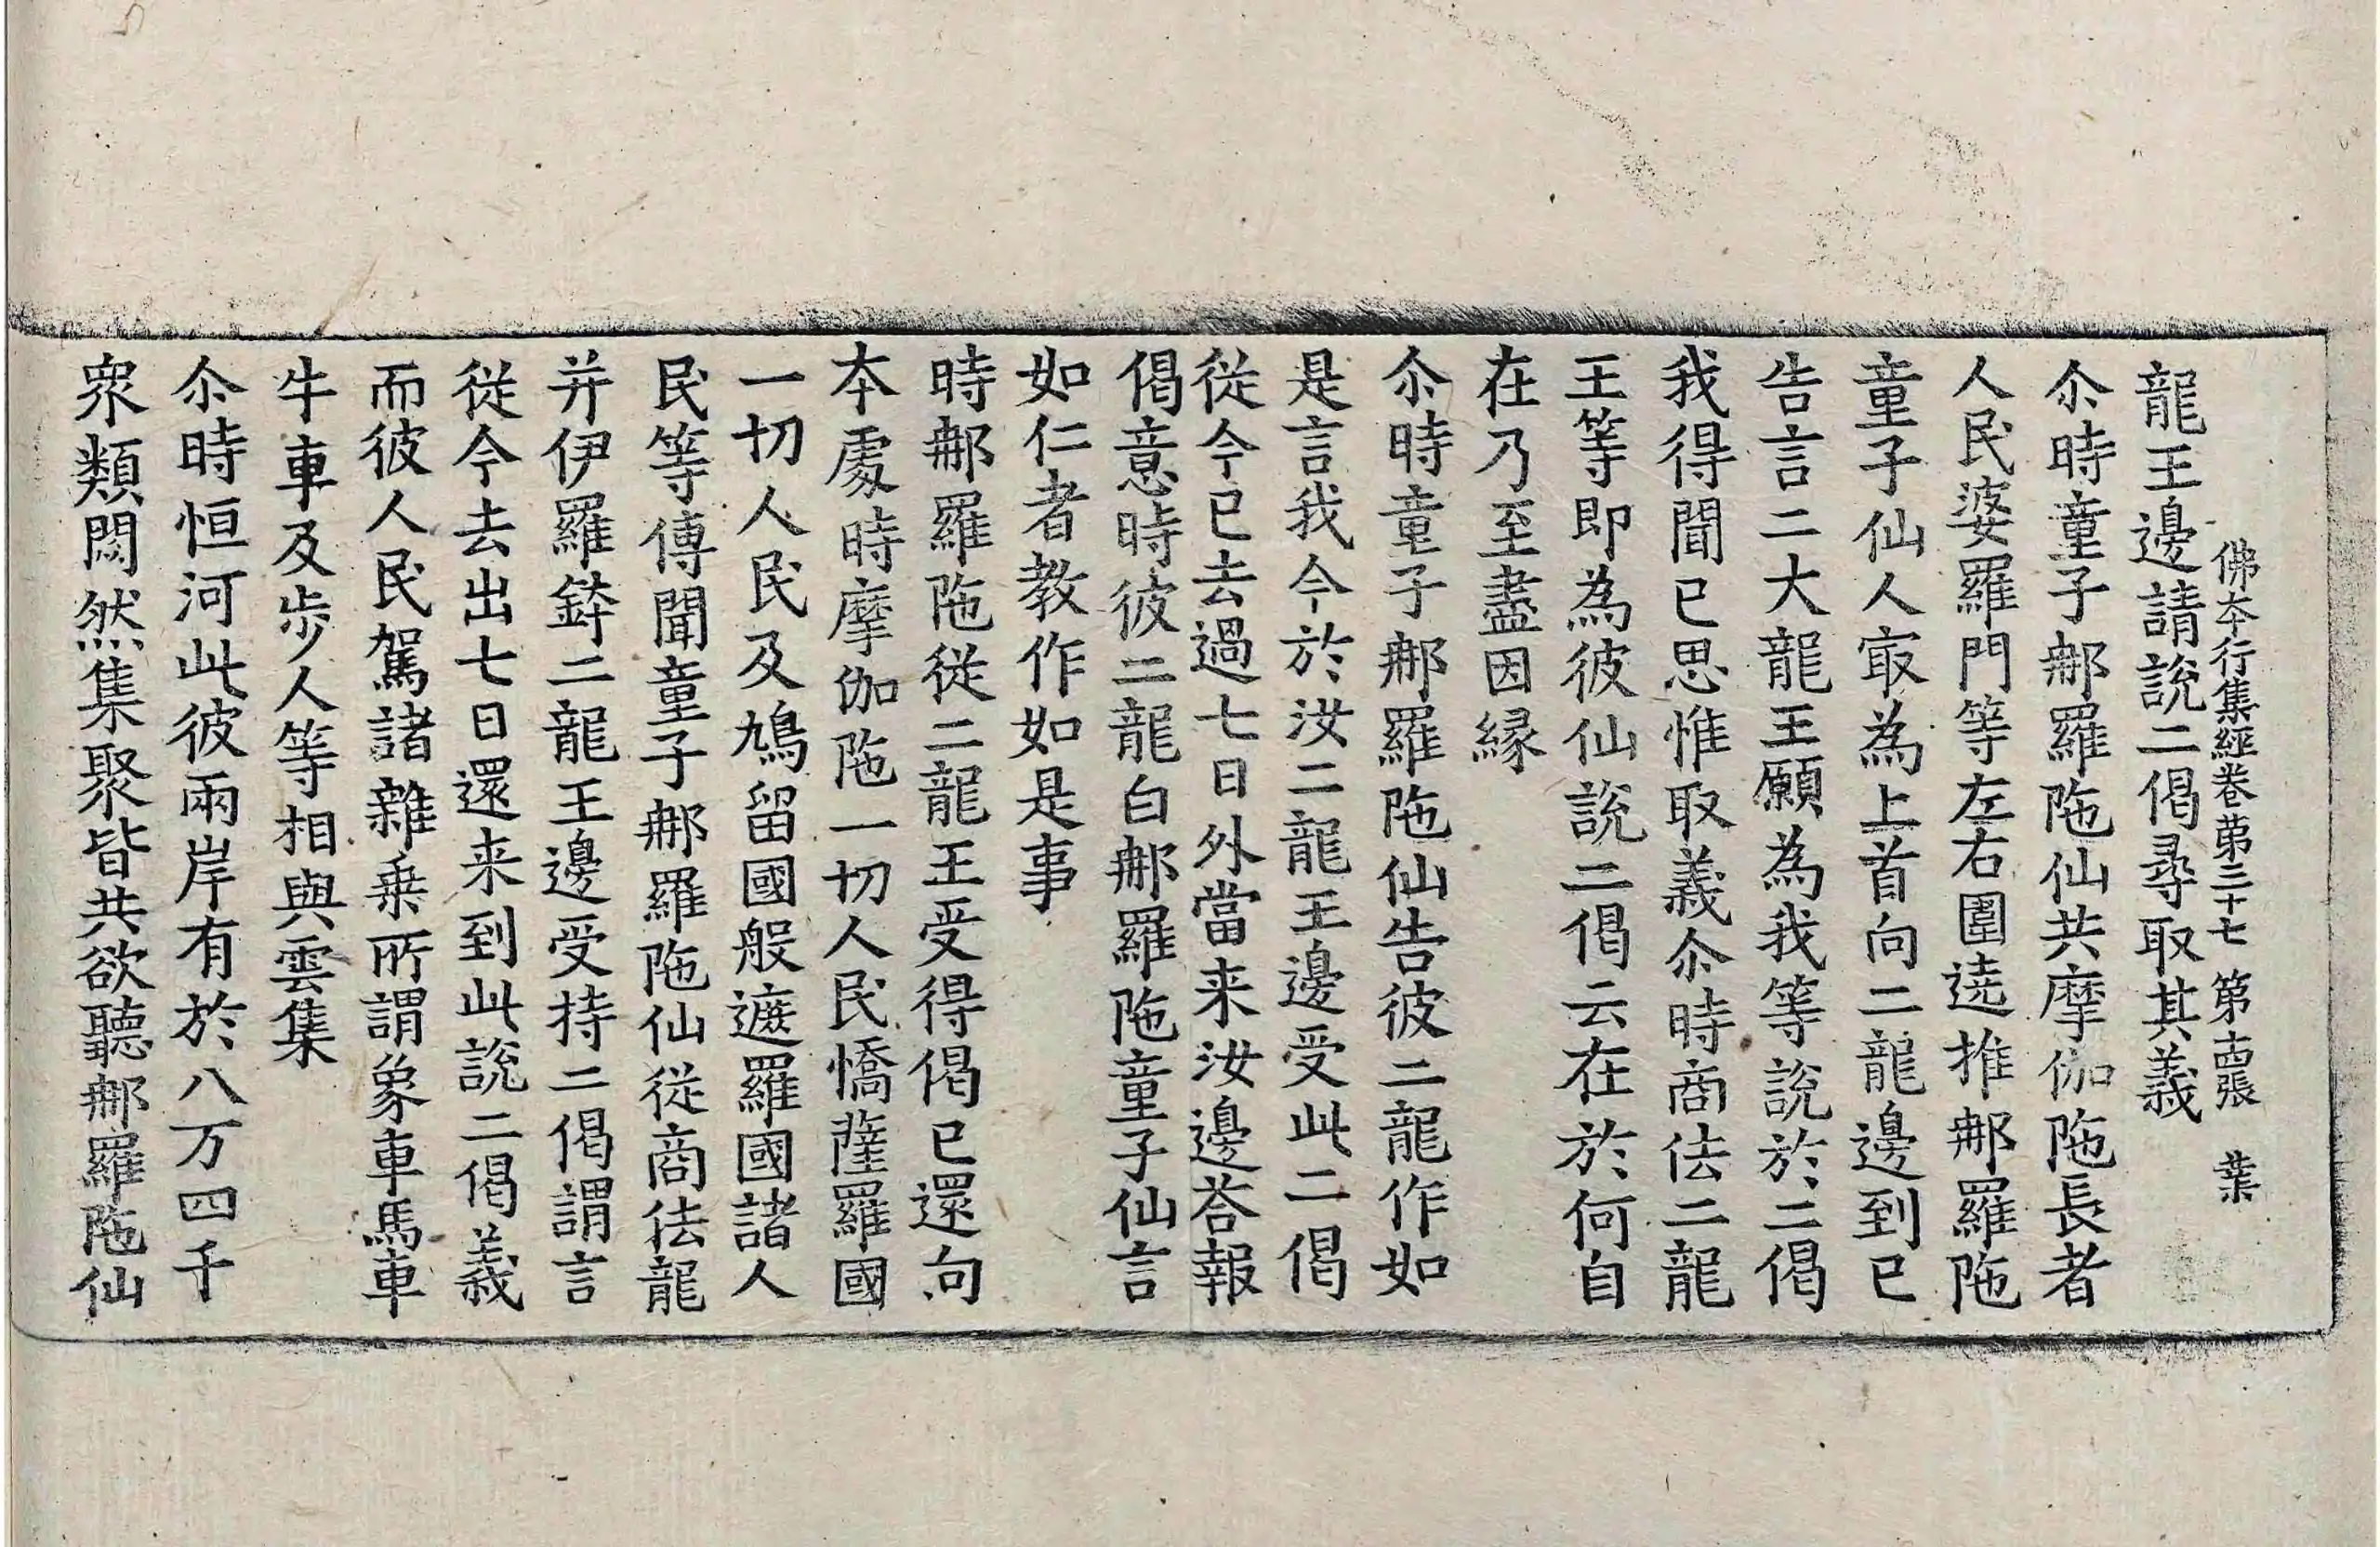 佛夲行集經卷苐三十七 第十四張 葉
龍王邊請說二偈尋取其義
尒時童子𨚗羅陁仙共摩伽陁長者
人民婆羅門等左右圍遶推𨚗羅陁
童子仙人㝡為上首向二龍邊到已
告言二大龍王願為我等說於二偈
我得聞已思惟取義尒時商佉二龍
王等即為彼仙說二偈云在於何自
在乃至盡因縁
尒時童子𨚗羅陁仙告彼二龍作如
是言我今於汝二龍王邊受此二偈
從今已去過七日外當来汝邊荅報
偈意時彼二龍白𨚗羅陁童子仙言
如仁者教作如是事
時𨚗羅陁從二龍王受得偈已還向
夲處時摩伽陁一切人民憍薩羅國
一切人民及鳩留國般遮羅國諸人
民等傳聞童子𨚗羅陁仙從商佉龍
并伊羅鉢二龍王邊受持二偈謂言
從今去出七日還来到此說二偈義
而彼人民駕諸雜乗所謂象車馬車
牛車及步人等相與雲集
尒時恒河此彼兩岸有於八万四千
衆類閙然集聚皆共欲聽𨚗羅陁仙